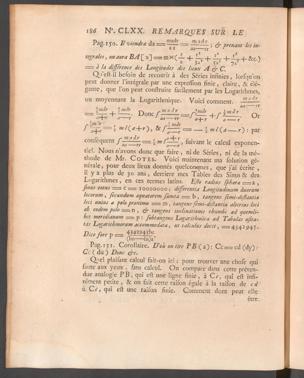 186 Nº. CLXX. REMARQUES SUR LE
Pag. 150. Il viendra dx = = ; & prenant les in-
tegrales, on aura BA [x] = m × ( + + + + &c.)
= à la différence des Longitudes des lieux A & C.
Qu'est-il besoin de recourir à des Séries infinies, lorsqu'on
peut donner l'intégrale par une expression finie, claire, & élé-
gante, que l'on peut construire facilement par les Logarithmes,
un moyennant la Logarithmique. Voici comment.
= + . Donc ∫ = ∫ + ∫ . Or
∫ = ½ m l (a+r), & ∫ = — ½ m l (a—r): par
conséquent ∫ = ½ m l , suivant le calcul exponen-
tiel. Nous n'avons donc que faire, ni de Séries, ni de la mé-
thode de Mr. COTES. Voici maintenant ma solution géné-
rale, pour deux lieux donnés quelconques, que j'ai écrite,
il y a plus de 30 ans, derriere mes Tables des Sinus & des
Logarithmes, en ces termes latins. Esto radius sphæræ = a,
sinus totus = t = 10000000; differentia Longitudinum duorum
locorum, secundum æquatorem sumta = b, tangens semi-distantiæ
loci unius a polo proximo = m, tangens semi-distantiæ alterius loci
ab eodem polo = n, & tangens inclinationis rhumbi ad quemli-
bet meridianum = p; subtangens Logarithmica ad Tabulas usita-
tas Logarithmorum accommodata, ut calculus docet, = 4342945.
Dico fore p =
Pag. 151. Corollaire. D'où on tire PB (z): Cc = cd (dy):
Cr (du) Donc &c.
Quel plaisant calcul fait-on ici: pour trouver une chose qui
saute aux yeux, sans calcul. On compare dans cette préten-
due analogie PB, qui est une ligne finie, à Cc, qui est infi-
niment petite, & on fait cette raison égale à la raison de cd
à Cr, qui est une raison finie. Comment donc peut elle
être